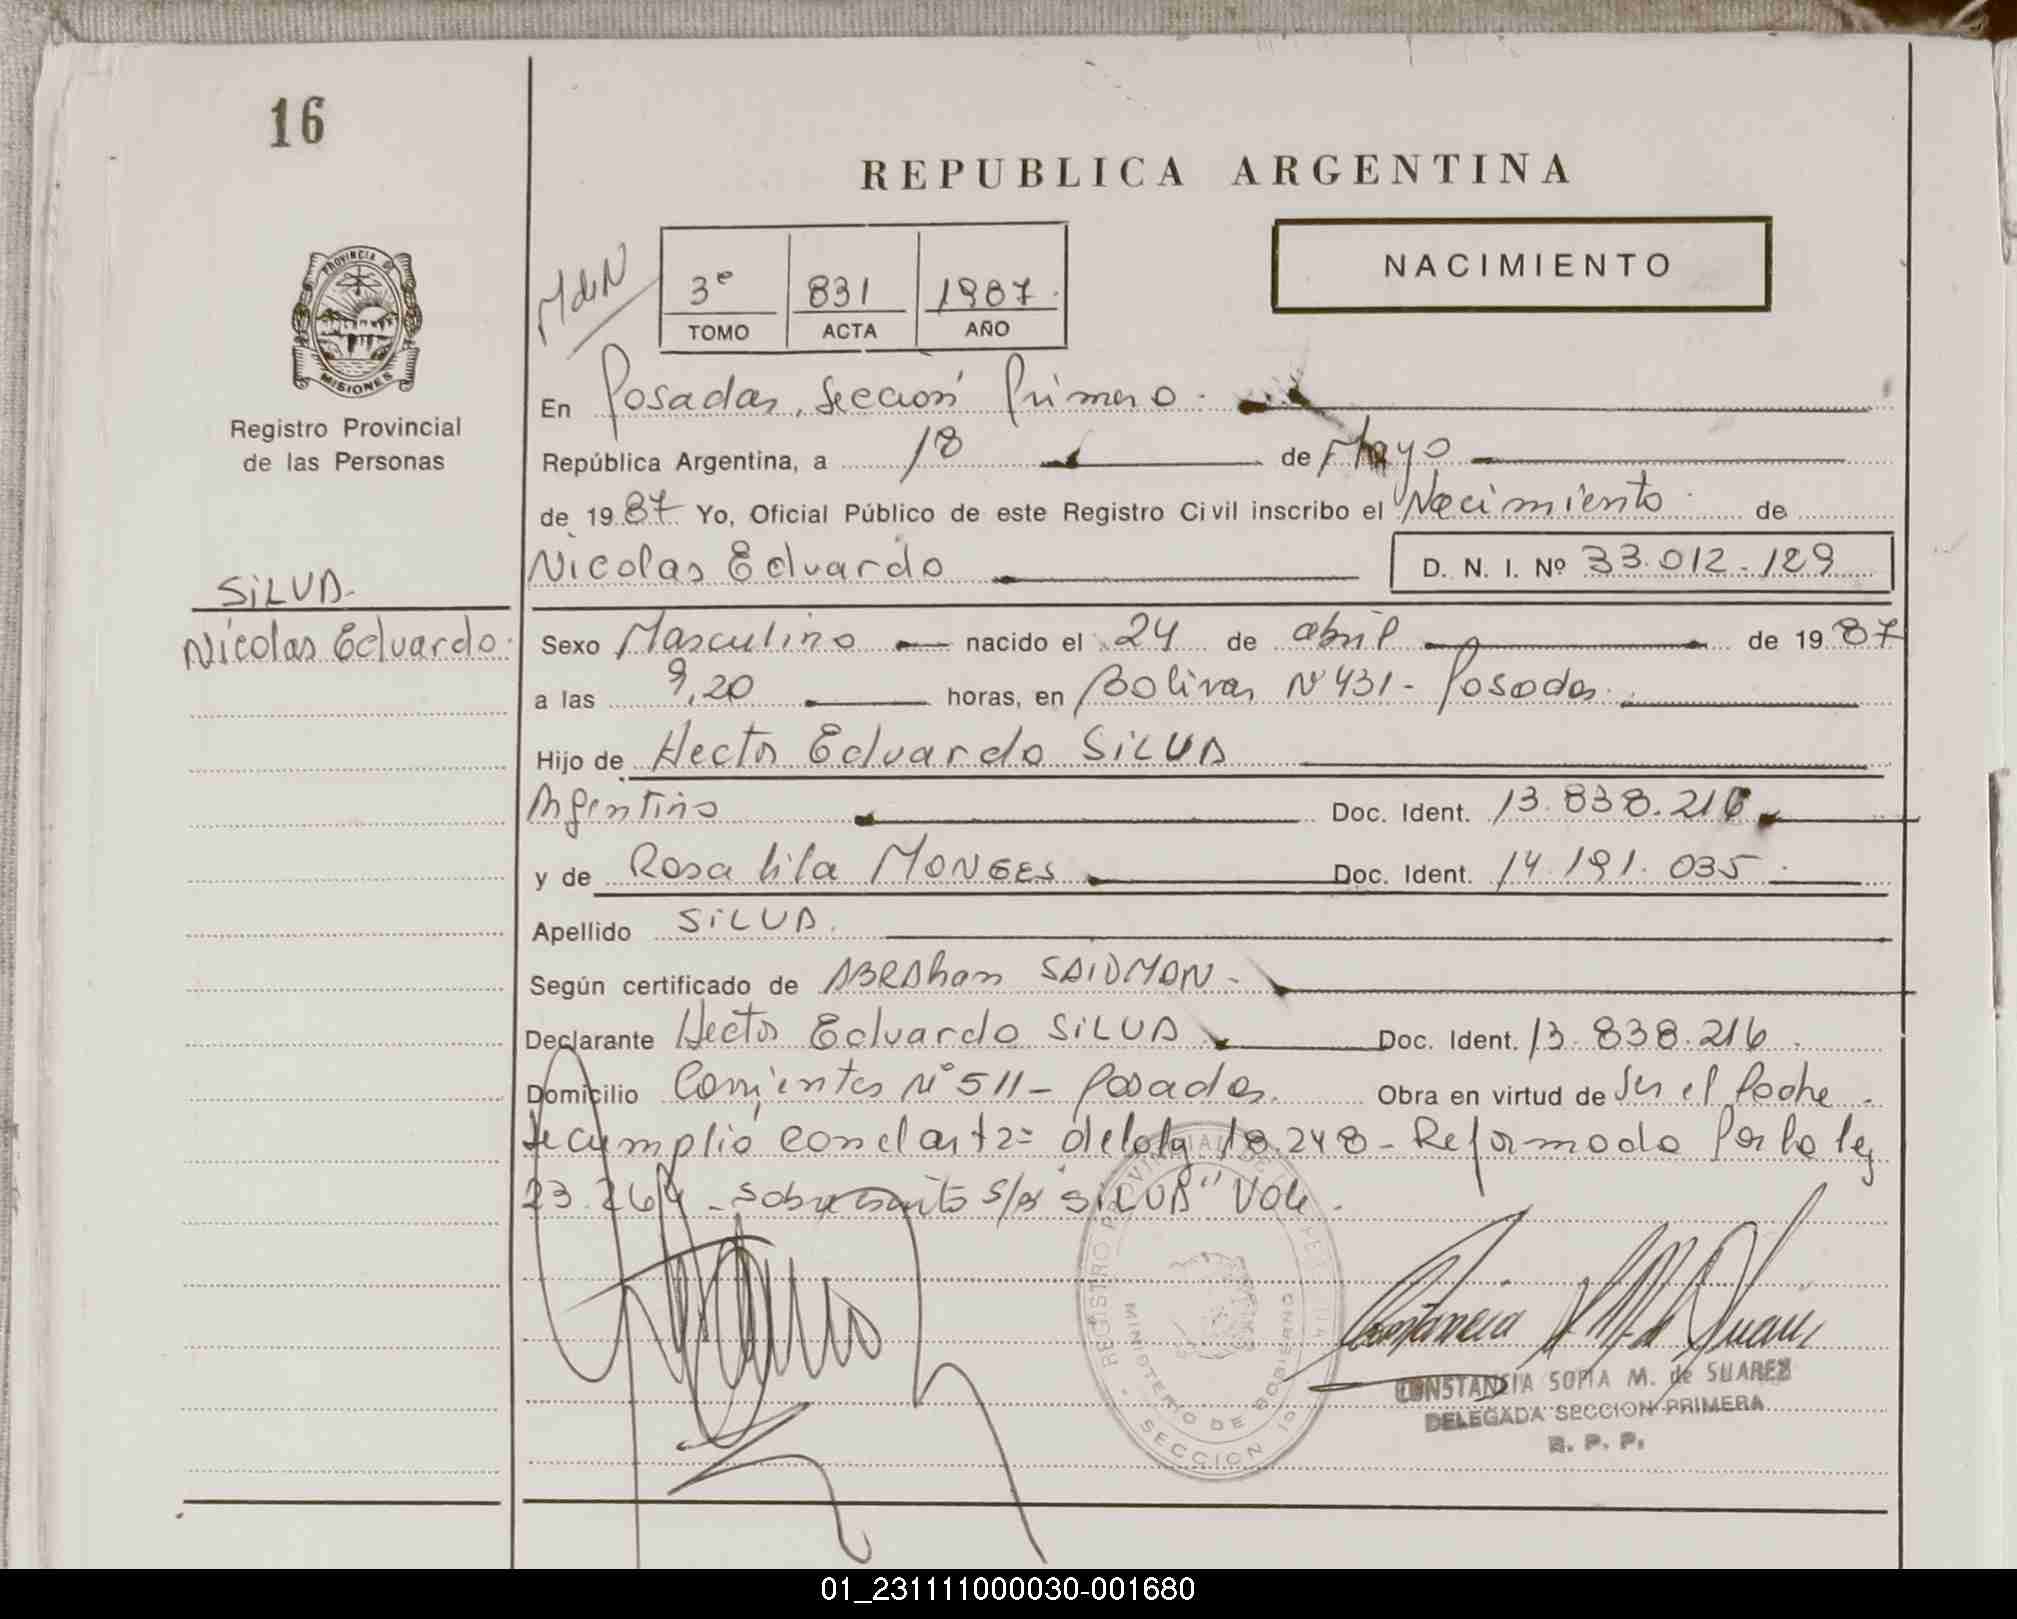 16
REPUBLICA ARGENTINA
NACIMIENTO
MdeN
3º 831 1987.
TOMO ACTA AÑO
PROVINCIA DE MISIONES
Registro Provincial
de las Personas
En Posadas, Sección Primera.
República Argentina, a 18 de Mayo
de 1987 Yo, Oficial Público de este Registro Civil inscribo el Nacimiento de
Nicolas Eduardo D. N. I. Nº 33.012.129
SILVA.
Nicolas Eduardo.
Sexo Masculino nacido el 24 de abril de 1987
a las 9,20 horas, en Bolivar Nº 431 - Posadas.
Hijo de Hector Eduardo SILVA
Argentino Doc. Ident. 13.838.216
y de Rosa Lila MONGES Doc. Ident. 14.191.035
Apellido SILVA.
Según certificado de ABRAham SAIDMAN -
Declarante Hector Eduardo SILVA Doc. Ident. 13.838.216.
Domicilio Corrientes Nº 511 - Posadas. Obra en virtud de Ser el Padre.
Se cumplió con el art 2= de la ley 18.248 - Reformada Por la ley
23.264 - Sobrescrito s/r "SILVA" Vale.
REGISTRO PROVINCIAL DE LAS PERSONAS
MINISTERIO DE GOBIERNO
SECCION 1º
CONSTANCIA SOFIA M. de SUAREZ
DELEGADA SECCION PRIMERA
R. P. P.
01_231111000030-001680